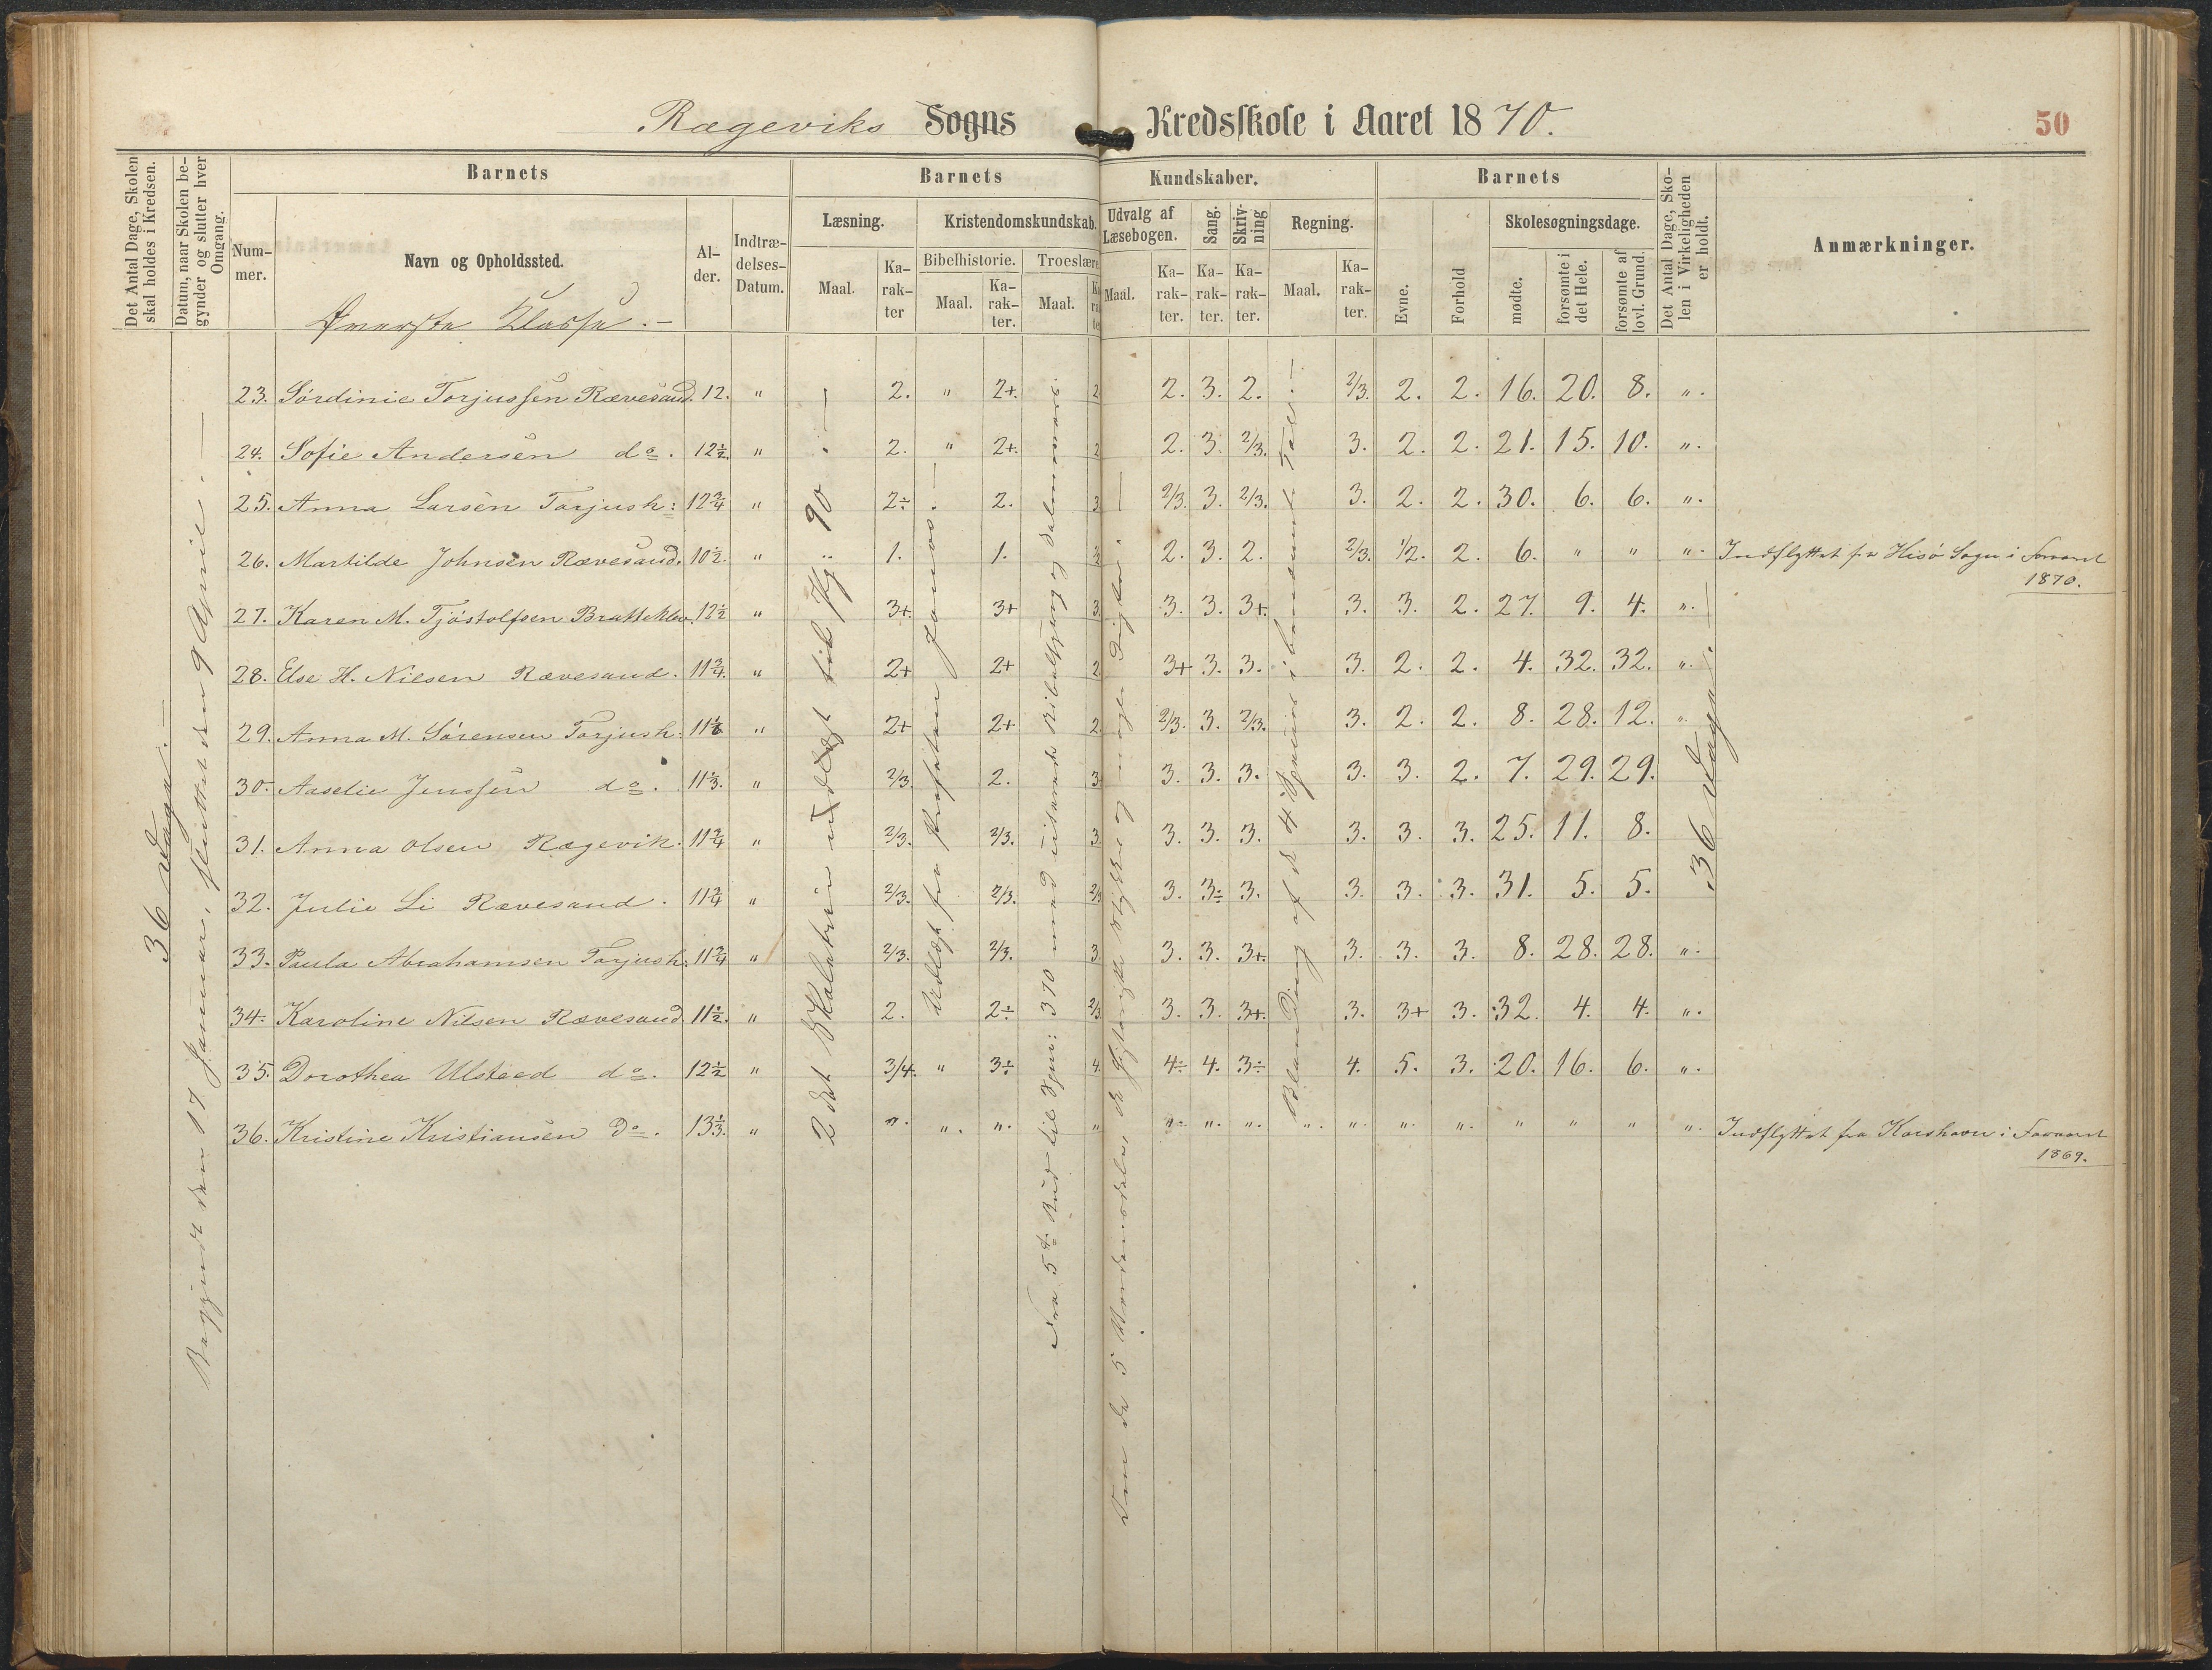 Rægeviks Sogns Kredsskole i Aaret 1870.
50
Det Antal Dage, Skolen skal holdes i Kredsen.
Datum, naar Skolen begynder og slutter hver Omgang.
Barnets
Nummer.
Navn og Opholdssted.
Øverste Klasse.-
Alder.
Indtrædelses-Datum.
Barnets Kundskaber.
Læsning.
Maal.
Karakter
Kristendomskundskab.
Bibelhistorie.
Maal.
Karakter.
Troeslære
Maal.
Udvalg af Læsebogen.
Maal.
Karakter.
Sang.
Karakter.
Skrivning
Karakter.
Regning.
Maal.
Karakter.
Barnets
Evne.
Forhold
Skolesøgningsdage.
mødte.
forsømte i det Hele.
forsømte af lovl. Grund.
Det Antal Dage, Skolen i Virkeligheden er holdt.
Anmærkninger.
36 Dage.-
Begyndt den 17 Januar, sluttet den 9 April.-
2det Skoletrin udlagt til Pg 90.-
Udlagt fra Profeten Jonas.-
Fra 5te Bud til Spm: 370 med
Blanding af de 4 Spesies i benævnte Tal.-
36 Dage.-
23. Sørdinie Torjussen Rævesand. 12. " 2. " 2+. 2 2. 3. 2. 2/3. 2. 2. 16. 20. 8. ".
24. Sofie Andersen do. 12½. " 2. " 2+. 2 2. 3. 2/3. 3. 2. 2. 21. 15. 10. ".
25. Anna Larsen Torjush: 12¾ " 2÷ 2. 3 2/3. 3. 2/3. 3. 2. 2. 30. 6. 6. ".
26. Martilde Johnsen Rævesand. 10½. " 1. 1. 2. 3. 2. 2/3. 1/2. 2. 6. " " ". Indflyttet fra Hisø Sogn i Foraaret 1870.
27. Karen M. Tjøstolfsen Bratteklev. 12½ " 3+. 3+ 3. 3. 3. 3+. 3. 3. 2. 27. 9. 4. ".
28. Else H. Nilsen Rævesand. 11¾. " 2+ 2+ 2 3+ 3. 3. 3. 2. 2. 4. 32. 32. ".
29. Anna M. Sørensen Torjush: " 2+ 2+ 2 2/3. 3. 2/3. 3. 2. 2. 8. 28. 12. ".
30. Aaselie Jenssen do. 11⅓. " 2/3. 2. 3. 3. 3. 3. 3. 3. 2. 7. 29. 29.
31. Anna Olsen Rægevik. 11¾ " 2/3. 2/3. 3. 3. 3. 3. 3. 3. 3. 25. 11. 8.
32. Julie Li Rævesand. 11¾ " 2/3. 2/3. 2/3 3. 3÷ 3. 3. 3. 3. 31. 5. 5.
33. Paula Abrahamsen Torjush: 11¾ " 2/3. 2/3. 3. 3. 3. 3+. 3. 3. 3. 8. 28. 28. ".
34. Karoline Nilsen Rævesand 11½. " 2. 2÷ 2/3 3. 3. 3+. 3. 3+ 3. 32. 4. 4. ".
35. Dorothea Ulsteed do. 12½ " 3/4. " 3÷ 4. 4÷ 4. 3÷ 4. 5. 3. 20. 16. 6. ".
36. Kristine Kristiansen do. 13⅓. " ". ". ". " ". ". ". ". ". ". ". " " " ". Indflyttet fra Korshavn i Foraaret 1869.